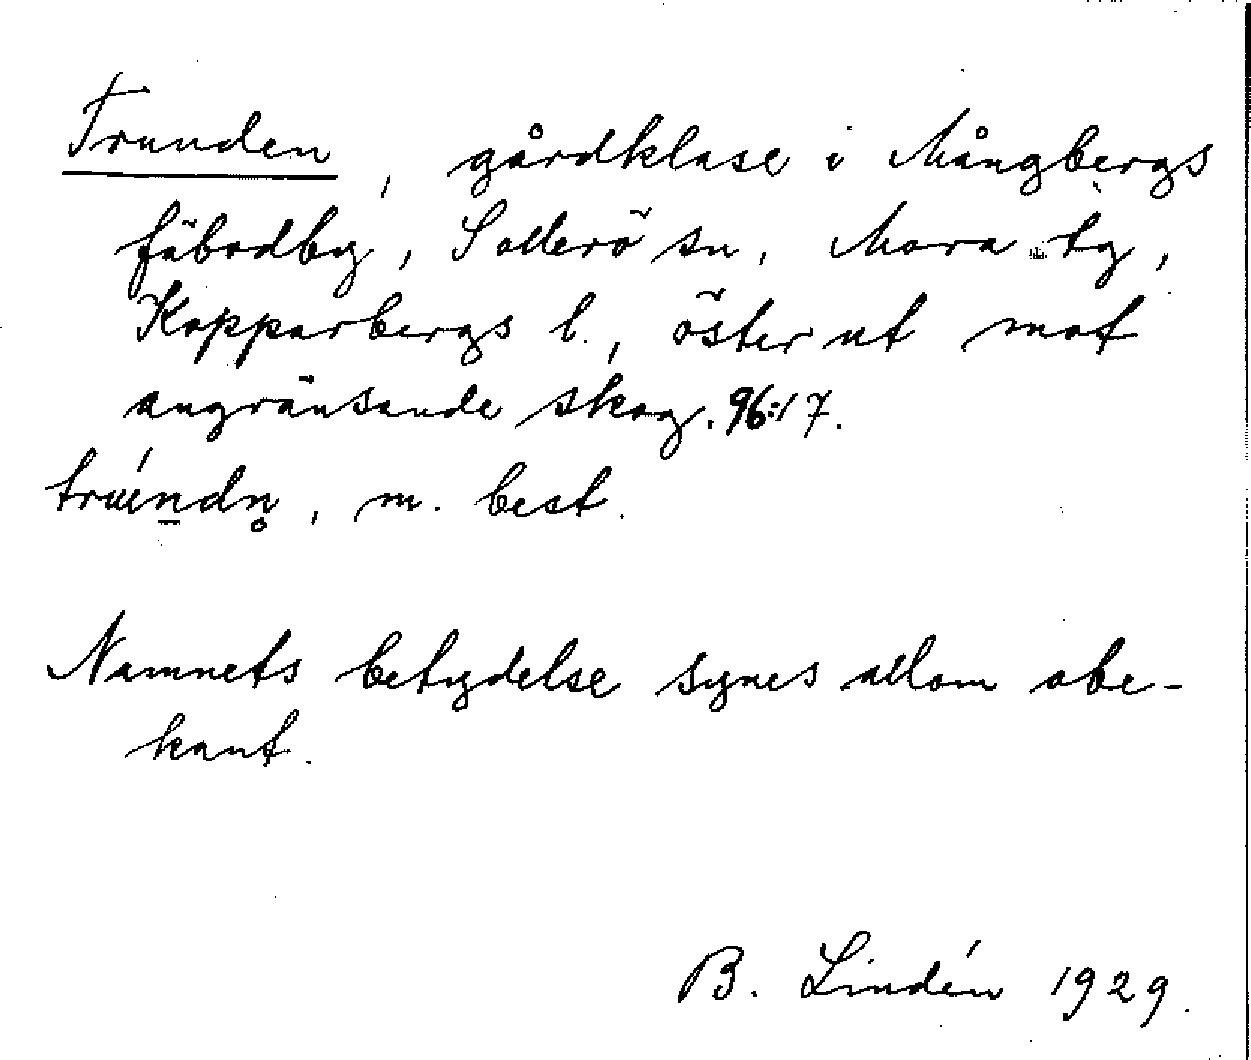 Trunden, gårdklase i Mångbergs
fäbodby, Sollerö sn, Mora tg,
Kopparbergs l., österut mot
angränsande skog. 96:17.
trúṉdn̥, m. best.
Namnets betydelse synes allom obe-
kant.
B. Lindén 1929.